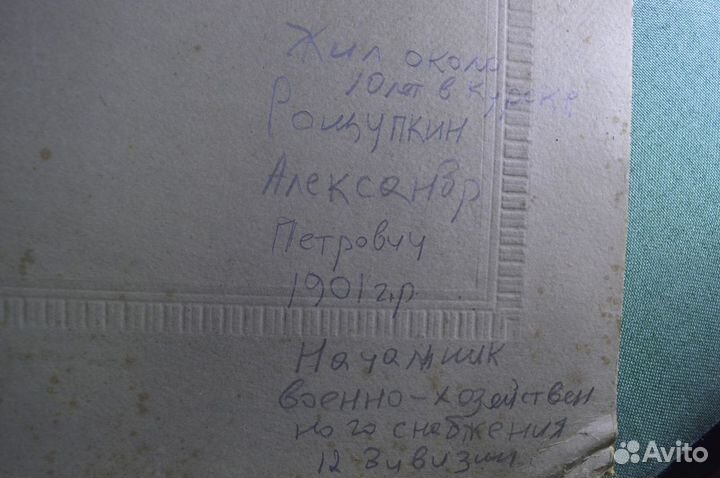 Жил около
10 лет в Курске
Рощупкин
Александр
Петрович
1901 г.р.
Начальник
военно-хозяйствен
ного снабжения
12 дивизии
Avito